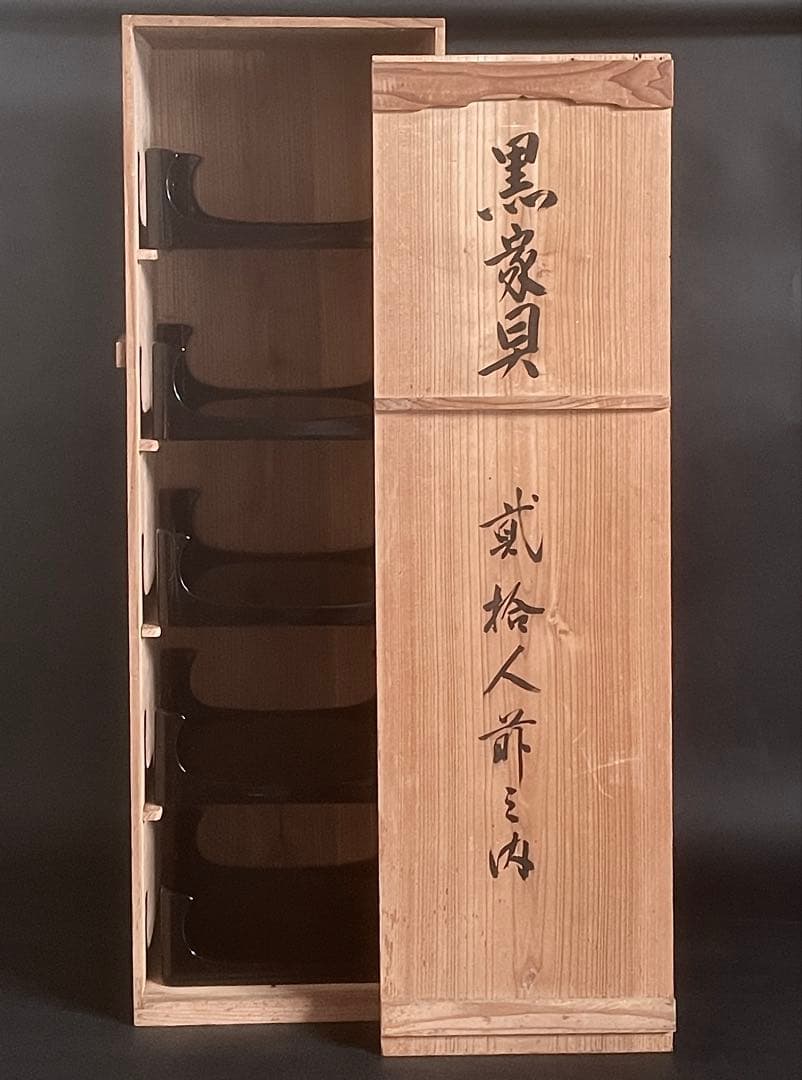 黒家具
貳拾人前之内